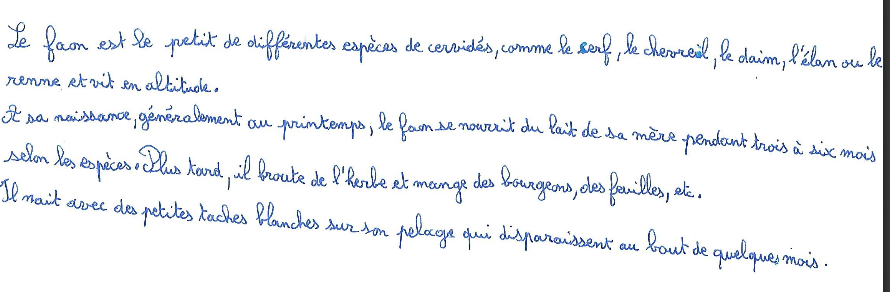 Le faon est le petit de différentes espèces de cervidés, comme le serf, le chevreuil, le daim, l'élan ou le
renne et vit en altitude.
A sa naissance, généralement au printemps, le faon se nourrit du lait de sa mère pendant trois à six mois
selon les espèces. Plus tard, il broute de l'herbe et mange des bourgeons, des feuilles, etc.
Il nait avec des petites taches blanches sur son pelage qui disparaissent au bout de quelques mois.